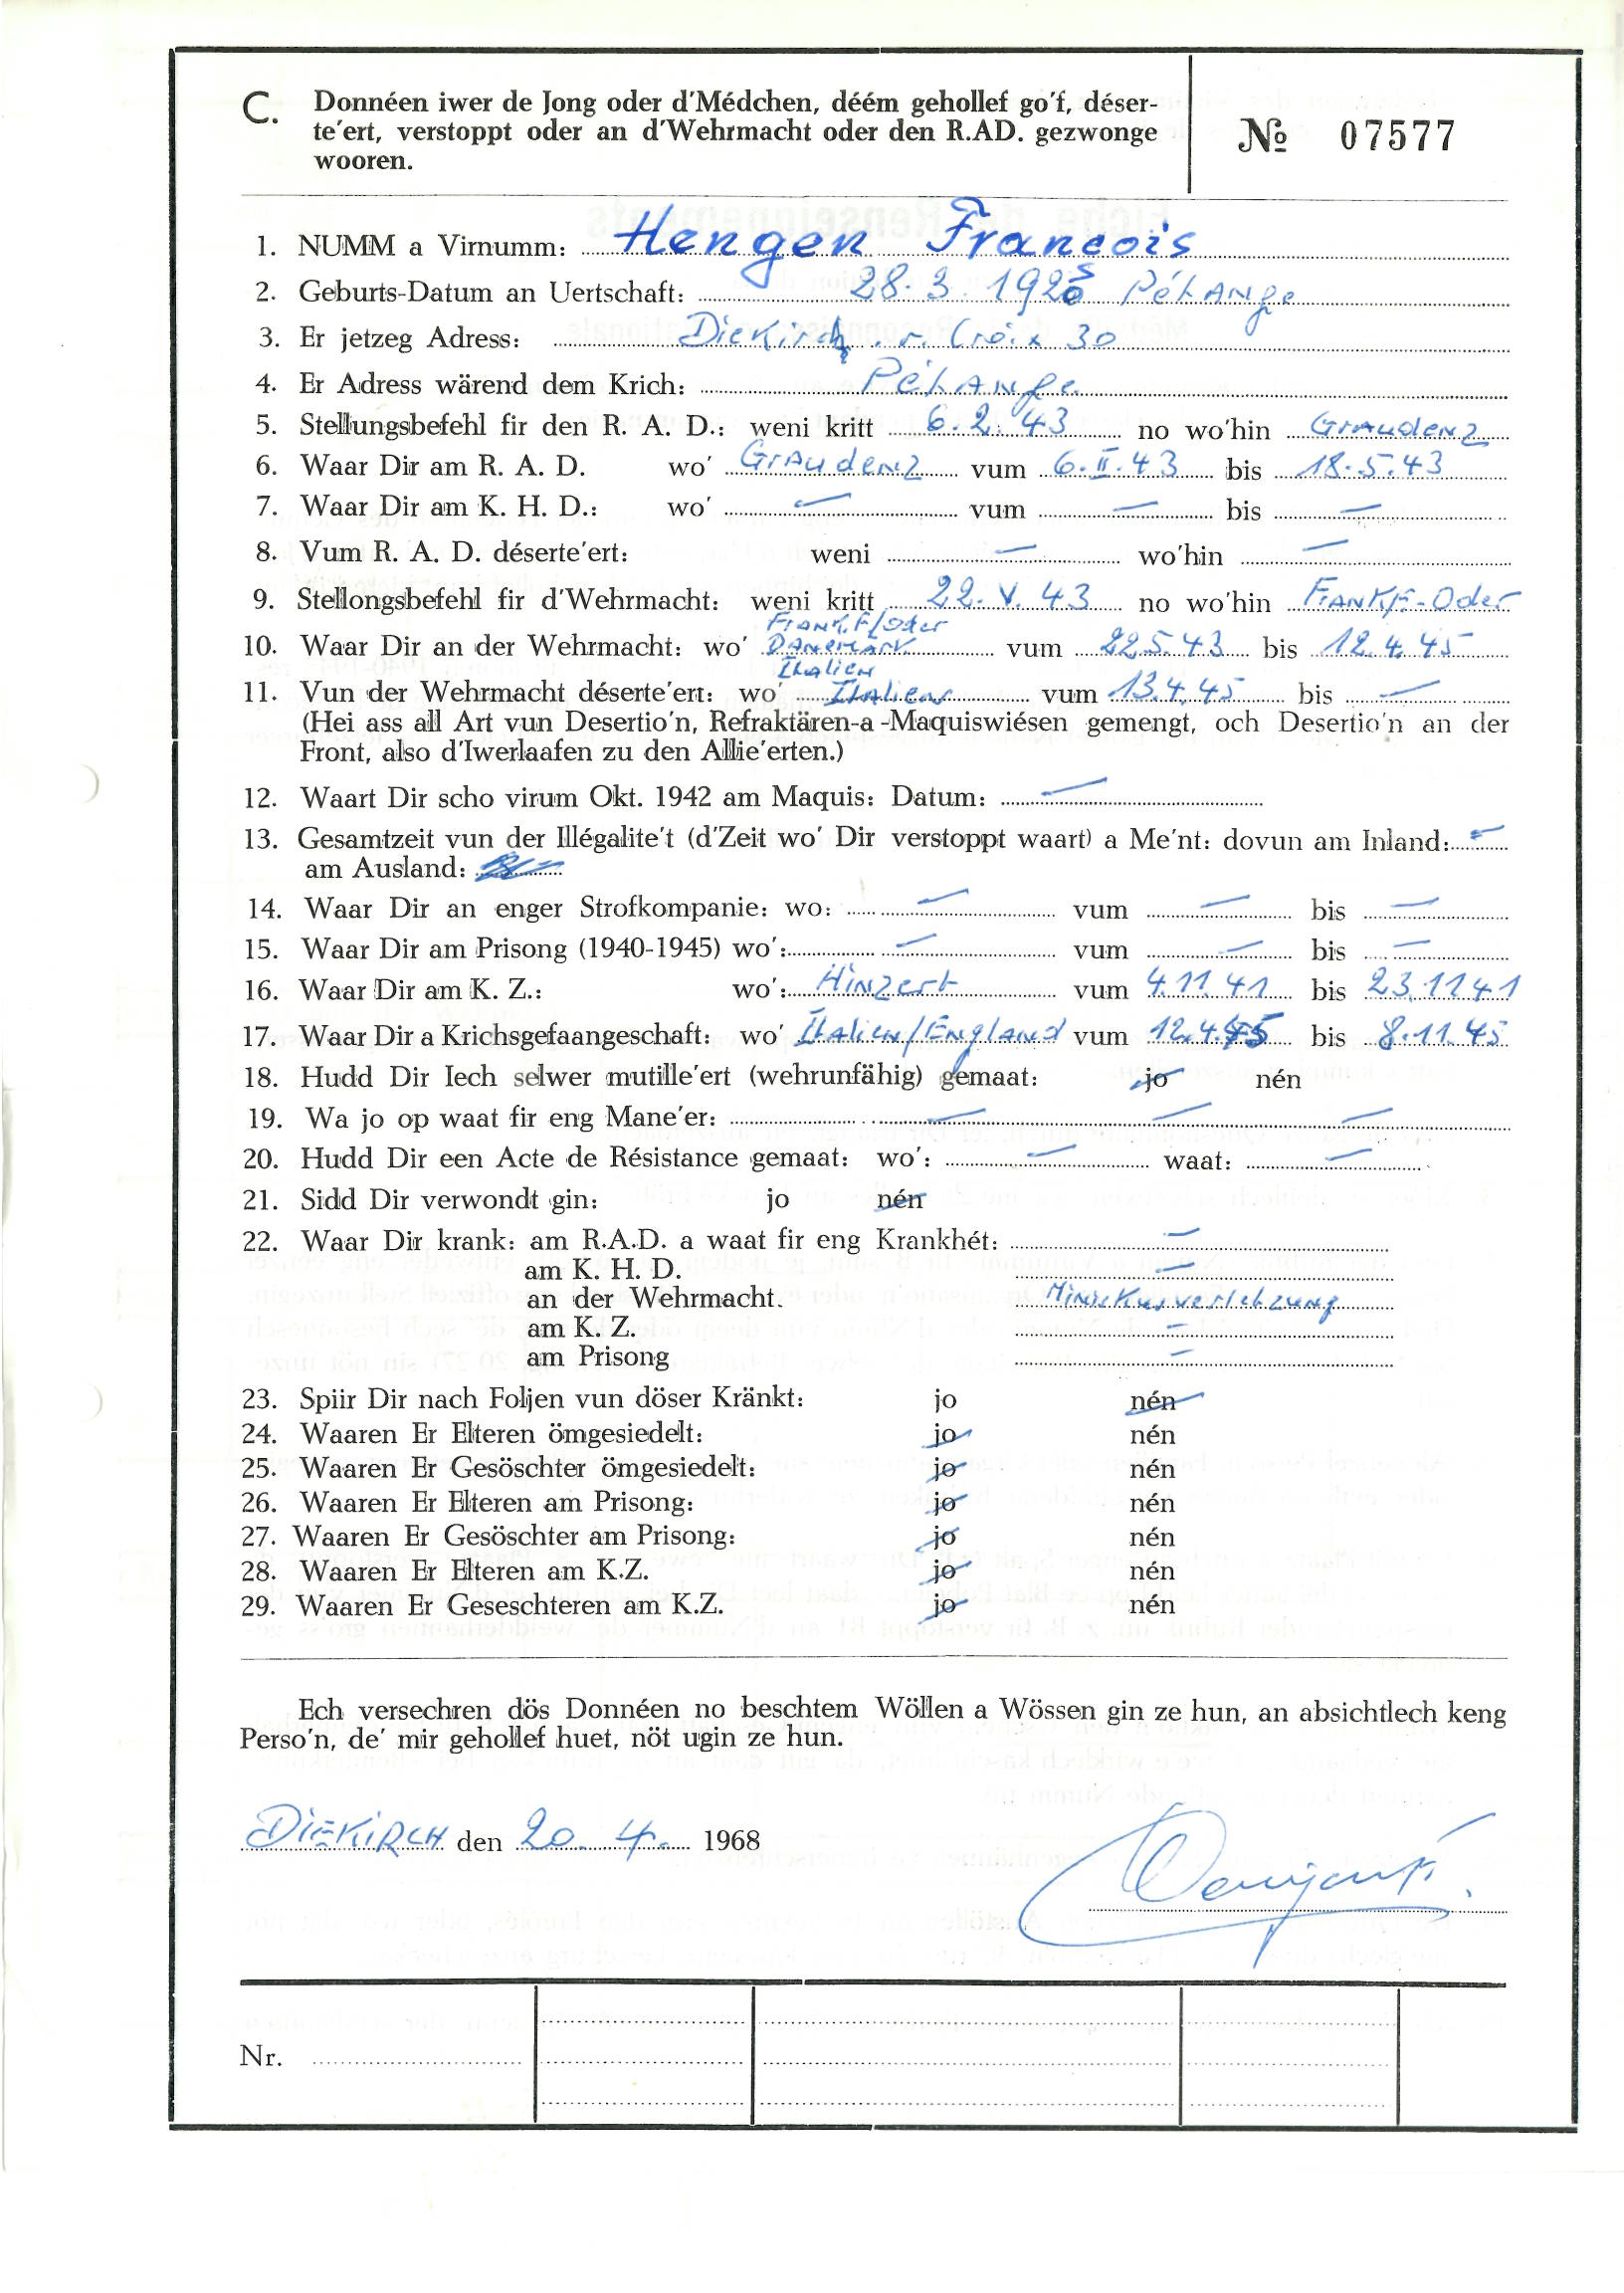 C. Donnéen iwer de Jong oder d'Médchen, déém gehollef go'f, déser-
te'ert, verstoppt oder an d'Wehrmacht oder den R.AD. gezwonge
wooren.
№ 07577
1. NUMM a Virnumm: Hengen Francois
2. Geburts-Datum an Uertschaft: 28.3.1925 Pétange
3. Er jetzeg Adress: Diekirch r. Croix 30
4. Er Adress wärend dem Krich: Pétange
5. Stellungsbefehl fir den R. A. D.: weni kritt 6.2.43 no wo'hin Graudenz
6. Waar Dir am R. A. D. wo' Graudenz vum 6.II.43 bis 18.5.43
7. Waar Dir am K. H. D.: wo' — vum — bis —
8. Vum R. A. D. déserte'ert: weni — wo'hin —
9. Stellongsbefehl fir d'Wehrmacht: weni kritt 22.V.43 no wo'hin Frankf.-Oder
Frankf/Oder
10. Waar Dir an der Wehrmacht: wo' Danemark vum 22.5.43 bis 12.4.45
Italien
11. Vun der Wehrmacht déserte'ert: wo' Italien vum 13.4.45 bis —
(Hei ass all Art vun Desertio'n, Refraktären-a-Maquiswiésen gemengt, och Desertio'n an der
Front, also d'Iwerlaafen zu den Allie'erten.)
12. Waart Dir scho virum Okt. 1942 am Maquis: Datum: —
13. Gesamtzeit vun der Illégalite't (d'Zeit wo' Dir verstoppt waart) a Me'nt: dovun am Inland: —
am Ausland:
14. Waar Dir an enger Strofkompanie: wo: — vum — bis —
15. Waar Dir am Prisong (1940-1945) wo': — vum — bis —
16. Waar Dir am K. Z.: wo': Hinzert vum 4.11.41 bis 23.11.41
17. Waar Dir a Krichsgefaangeschaft: wo' Italien/England vum 12.4.45 bis 8.11.45
18. Hudd Dir Iech selwer mutille'ert (wehrunfähig) gemaat: jo nén
19. Wa jo op waat fir eng Mane'er: — — —
20. Hudd Dir een Acte de Résistance gemaat: wo': — waat: —
21. Sidd Dir verwondt gin: jo nén
22. Waar Dir krank: am R.A.D. a waat fir eng Krankhét: —
am K. H. D. —
an der Wehrmacht. Miniskusverletzung
am K. Z. —
am Prisong —
23. Spiir Dir nach Foljen vun döser Kränkt: jo nén
24. Waaren Er Elteren ömgesiedelt: jo nén
25. Waaren Er Gesöschter ömgesiedelt: jo nén
26. Waaren Er Elteren am Prisong: jo nén
27. Waaren Er Gesöschter am Prisong: jo nén
28. Waaren Er Elteren am K.Z. jo nén
29. Waaren Er Geseschteren am K.Z. jo nén
Ech versechren dös Donnéen no beschtem Wöllen a Wössen gin ze hun, an absichtlech keng
Perso'n, de' mir gehollef huet, nöt ugin ze hun.
DIEKIRCH den 20. 4. 1968
Nr.